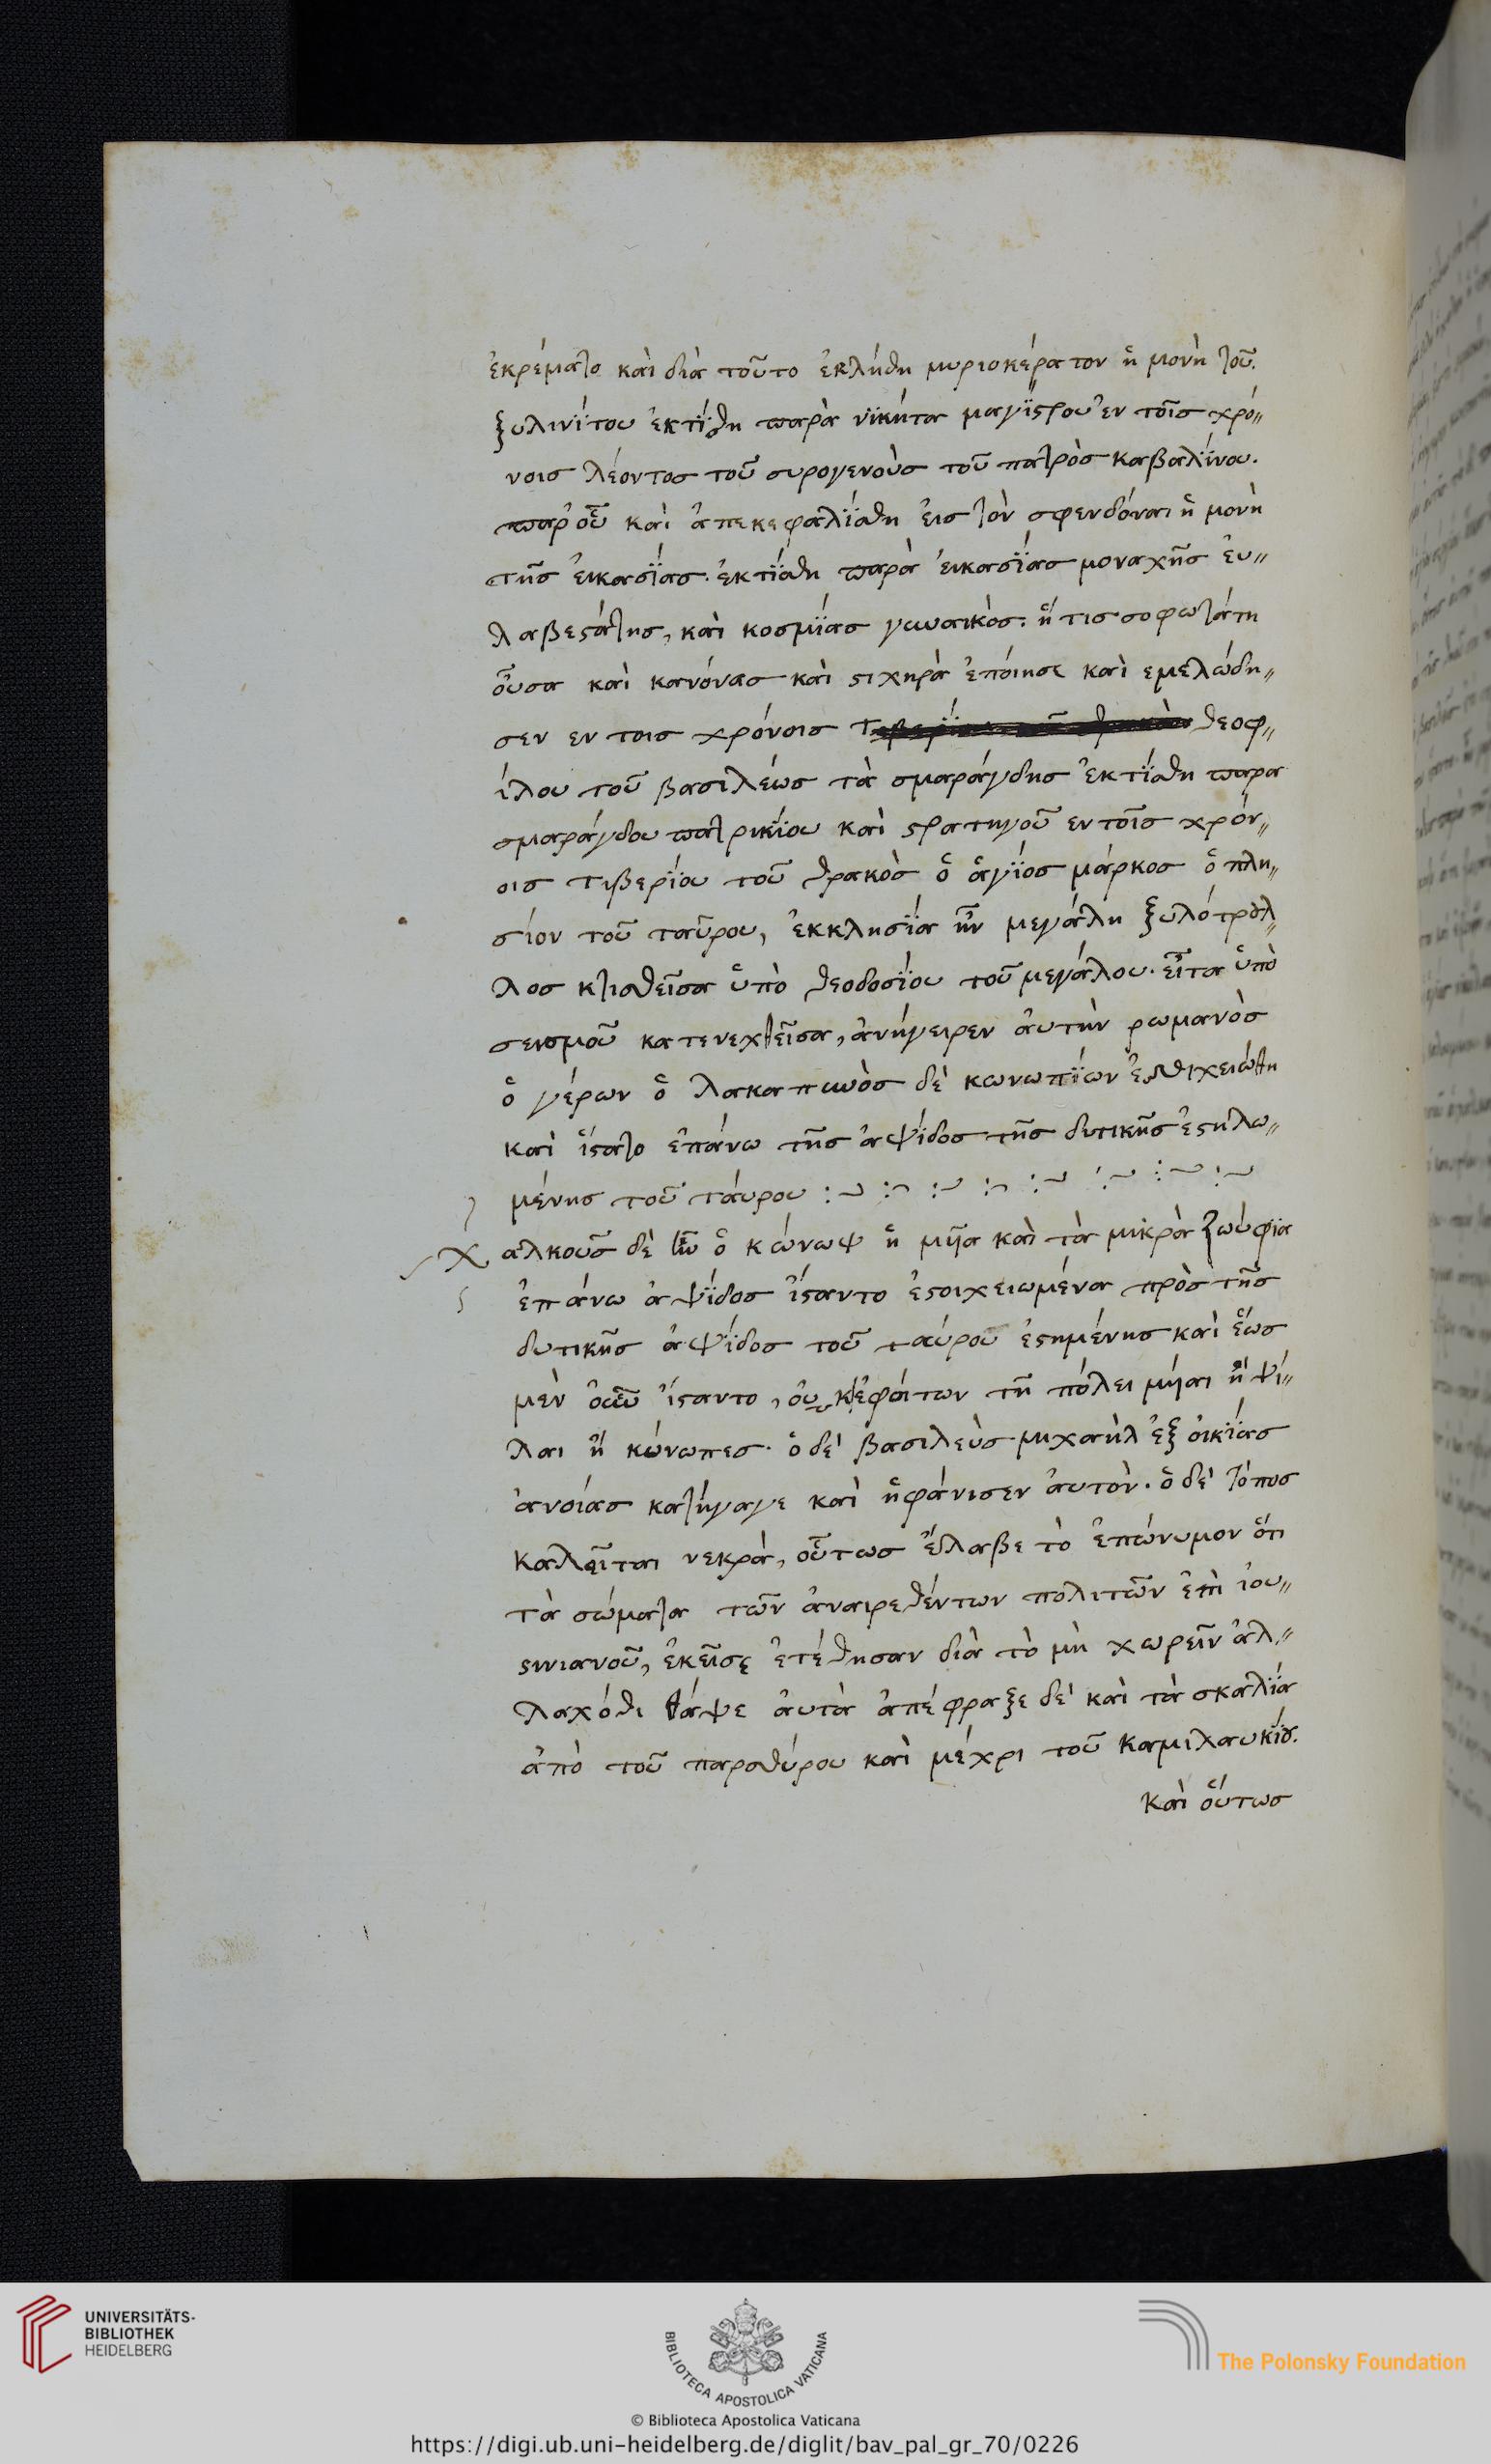 ἐκρέματο καὶ διὰ τοῦτο ἐκλήθη μυριοκέρατον ἡ μονὴ τοῦ.
ξυλινίτου ἐκτίσθη παρὰ νικήτα μαγίστρου ἐν τοῖς χρό〃
νοις λέοντος τοῦ συρογενοὺς τοῦ πατρὸς καβαλίνου.
παρ' οὗ καὶ ἀπεκεφαλίσθη εἰς τὸν σφενδόναι ἡ μονὴ
τῆς εἰκασίας. ἐκτίσθη παρὰ εἰκασίας μοναχῆς εὐ〃
λαβεστάτης, καὶ κοσμίας γυναικὸς. ἥτις σοφωτάτη
οὖσα καὶ κανόνας καὶ στιχηρὰ ἐποίησε καὶ εμελώδη〃
σεν εν τοις χρόνοις θεοφ〃
ίλου τοῦ βασιλέως τὰ σμαράγδης ἐκτίσθη παρα
σμαράγδου πατρικίου καὶ στρατηγοῦ εν τοῖς χρόν〃
οις τιβερίου τοῦ θρακὸς ὁ ἅγιος μάρκος ὁ πλη〃
σίον τοῦ ταῦρου, ἐκκλησία ἦν μεγάλη ξυλότρουλ〃
λος κτισθεῖσα ὑπὸ θεοδοσίου τοῦ μεγάλου. εἶτα ὑπὸ
σεισμοῦ κατενεχθεῖσα, ἀνήγειρεν ἀυτὴν ρωμανὸς
ὁ γέρων ὁ λακαπινὸς δὲ κωνωπίων
καὶ ἵστατο ἐπάνω τῆς ἁψίδος τῆς δυτικῆς ἐστηλω〃
μένης τοῦ τάυρου :~ :~ :~ :~ :~ :~ :~ :~
Χαλκοῦς δὲ ἦν ὁ κώνωψ ἡ μῆα καὶ τὰ μικρὰ ζωύφια
ἐπάνω ἁψίδος ἵσταντο ἐστοιχειωμένα πρὸς τῆς
δυτικῆς ἁψίδος τοῦ ταύρου ἐστημένης καὶ ἕως
μὲν ἵσταντο, ἐφοίτων τῆ πόλει μῆαι ἢ ψί〃
λαι ἢ κώνωπες. ὁ δὲ βασιλεὺς μιχαὴλ ἐξ οἰκίας
ἀνοίας κατήγαγε καὶ ἡφάνισεν ἀυτὸν. ὁ δὲ τόπος
καλεῖται νεκρὰ, οὕτως ἔλαβε τὸ ἐπώνυμον ὅτι
τὰ σώματα τῶν ἀναιρεθέντων πολιτῶν ἐπὶ ἰου〃
στινιανοῦ, ἐκεῖσε ἐτέθησαν διὰ τὸ μὴ χωρεῖν ἀλ〃
λαχόθι θάψε ἀυτὰ ἀπέφραξε δὲ καὶ τὰ σκαλία
ἀπὸ τοῦ παραθύρου καὶ μέχρι τοῦ καμιλαυκίου.
καὶ οὕτως
UNIVERSITÄTS-
BIBLIOTHEK
HEIDELBERG
BIBLIOTECA APOSTOLICA VATICANA
The Polonsky Foundation
© Biblioteca Apostolica Vaticana
https://digi.ub.uni-heidelberg.de/diglit/bav_pal_gr_70/0226